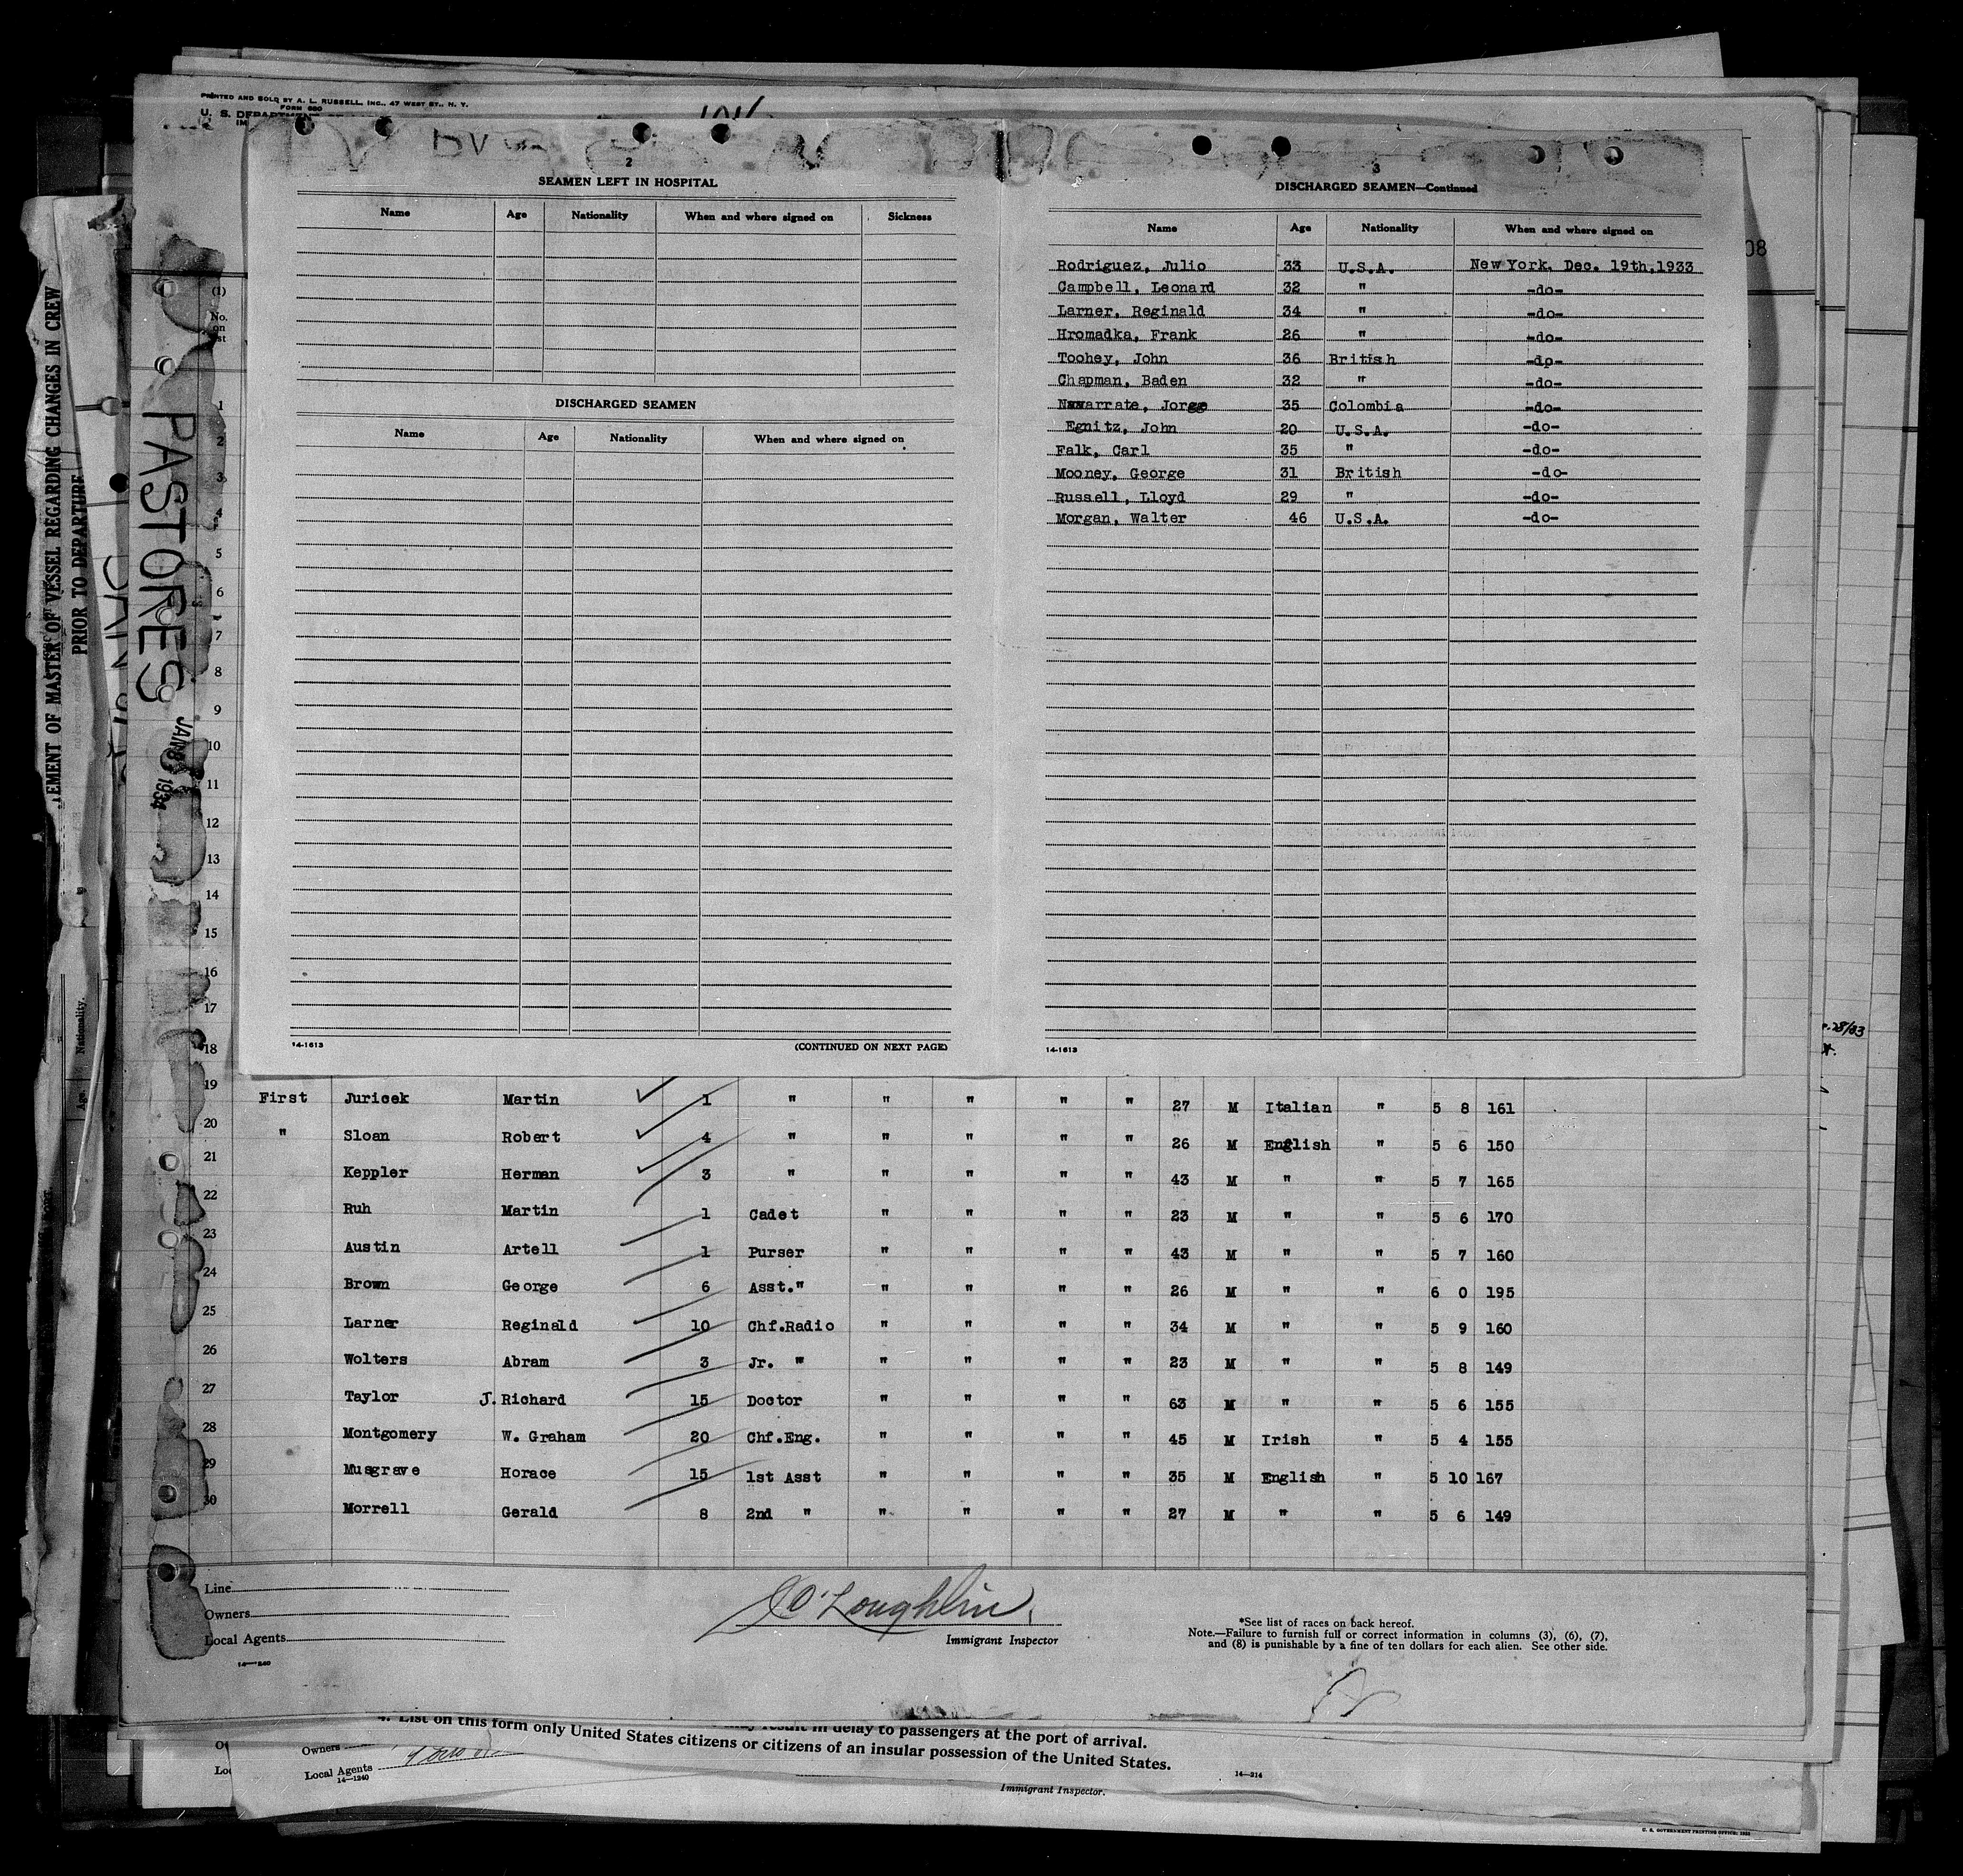 PRINTED AND SOLD BY A. L. RUSSELL, INC., 47 WEST ST., N. Y.
FORM 680
U. S. DEPARTMENT
2
SEAMEN LEFT IN HOSPITAL
Name Age Nationality When and where signed on Sickness
DISCHARGED SEAMEN
Name Age Nationality When and where signed on
14-1613 (CONTINUED ON NEXT PAGE)
3
DISCHARGED SEAMEN—Continued
Name Age Nationality When and where signed on
Rodriguez, Julio 33 U.S.A. New York, Dec. 19th,1933
Campbell, Leonard 32 " -do-
Larner, Reginald 34 " -do-
Hromadka, Frank 26 " -do-
Toohey, John 36 British -do-
Chapman, Baden 32 " -do-
Navarrate, Jorge 35 Colombia -do-
Egnitz, John 20 U.S.A. -do-
Falk, Carl 35 " -do-
Mooney, George 31 British -do-
Russell, Lloyd 29 " -do-
Morgan, Walter 46 U.S.A. -do-
14-1613
EMENT OF MASTER OF VESSEL REGARDING CHANGES IN CREW
PRIOR TO DEPARTURE
PASTORES
1934
Nationality.
Age
08
(1)
No.
on
1
2
3
4
5
6
7
8
9
10
11
12
13
14
15
16
17
18
19 First Juricek Martin 1 " " " " " 27 M Italian " 5 8 161
20 " Sloan Robert 4 " " " " " 26 M English " 5 6 150
21 Keppler Herman 3 " " " " " 43 M " " 5 7 165
22 Ruh Martin 1 Cadet " " " " 23 M " " 5 6 170
23 Austin Artell 1 Purser " " " " 43 M " " 5 7 160
24 Brown George 6 Asst." " " " " 26 M " " 6 0 195
25 Larner Reginald 10 Chf.Radio " " " " 34 M " " 5 9 160
26 Wolters Abram 3 Jr. " " " " " 23 M " " 5 8 149
27 Taylor J. Richard 15 Doctor " " " " 63 M " " 5 6 155
28 Montgomery W. Graham 20 Chf.Eng. " " " " 45 M Irish " 5 4 155
29 Musgrave Horace 15 1st Asst " " " " 35 M English " 5 10 167
30 Morrell Gerald 8 2nd " " " " " 27 M " " 5 6 149
Line
Owners
Local Agents
14—240
O'Loughlin
Immigrant Inspector
*See list of races on back hereof.
Note.—Failure to furnish full or correct information in columns (3), (6), (7),
and (8) is punishable by a fine of ten dollars for each alien. See other side.
may result in delay to passengers at the port of arrival.
4. List on this form only United States citizens or citizens of an insular possession of the United States.
14—214
Owners
Local Agents
14—1240
Immigrant Inspector.
U. S. GOVERNMENT PRINTING OFFICE: